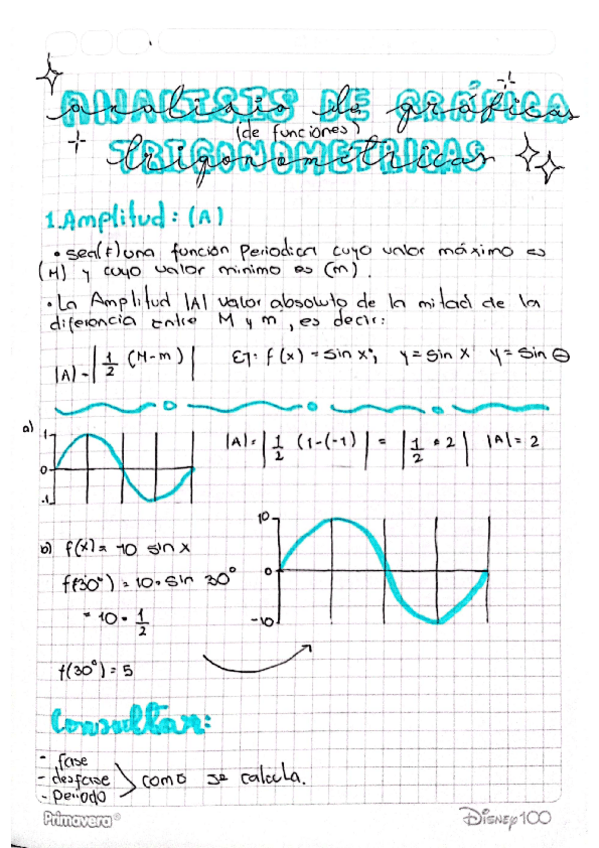 ANALISIS DE GRÁFICA
analisis de gráficas
(de funciones)
TRIGONOMETRICAS
trigonometricas
1. Amplitud: (A)
• sea (f) una función Periodica cuyo valor máximo es
(M) y cuyo valor minimo es (m).
• La Amplitud |A| valor absoluto de la mitad de la
diferencia entre M y m, es decir:
|A| = | 1/2 (M-m) | Ej: f(x) = sin x; y = sin x y = sin θ
a) 1 0 -1 |A| = | 1/2 (1-(-1) | = | 1/2 • 2 | |A| = 2
b) f(x) = 10 sin x
f(30°) = 10 • sin 30°
= 10 • 1/2
f(30°) = 5
10
0
-10
Consultar:
- fase
- desfase
- Periodo
como se calcula.
Primavera®
Disney100